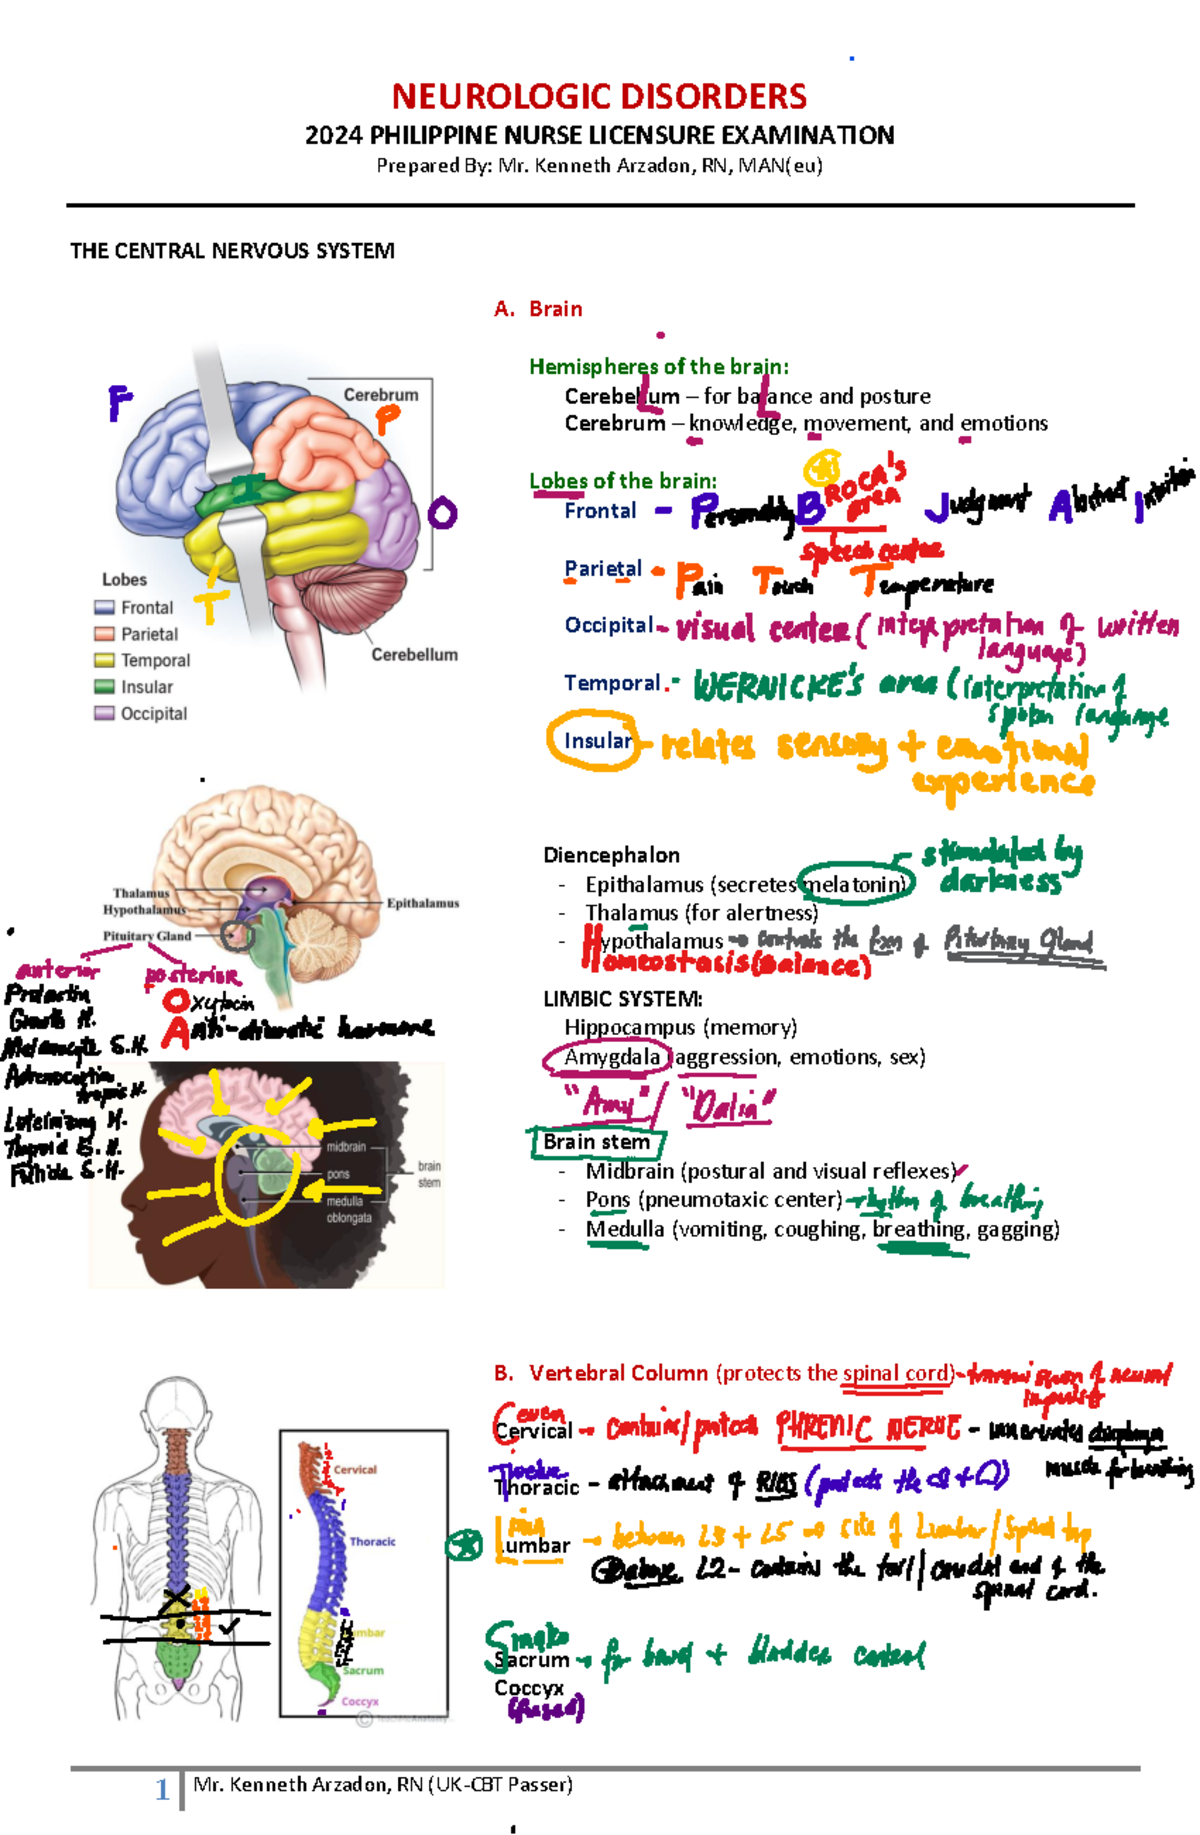 NEUROLOGIC DISORDERS
2024 PHILIPPINE NURSE LICENSURE EXAMINATION
Prepared By: Mr. Kenneth Arzadon, RN, MAN(eu)
THE CENTRAL NERVOUS SYSTEM
A. Brain
Hemispheres of the brain:
Cerebellum – for balance and posture
Cerebrum – knowledge, movement, and emotions
Lobes of the brain:
Frontal - Personality BROCA'S area Judgment Abstract
speech center
Parietal - Pain Touch Temperature
Occipital - visual center (interpretation of written
language)
Temporal - WERNICKE'S area (interpretation of
spoken language
Insular - relates sensory + emotional
experience
F
Cerebrum
P
I
O
T
Lobes
Frontal
Parietal
Temporal
Insular
Occipital
Cerebellum
Diencephalon
- Epithalamus (secretes melatonin) stimulated by
darkness
- Thalamus (for alertness)
- Hypothalamus → controls the fxn of Pituitary Gland
Homeostasis (Balance)
Thalamus
Hypothalamus
Pituitary Gland
Epithalamus
anterior
Prolactin
Growth H.
Melanocyte S.H.
Adrenocortico
tropic H.
Luteinizing H.
Thyroid S.H.
Follicle S.H.
posterior
Oxytocin
Anti-diuretic hormone
LIMBIC SYSTEM:
Hippocampus (memory)
Amygdala (aggression, emotions, sex)
"Amy" / "Dalia"
Brain stem
- Midbrain (postural and visual reflexes)
- Pons (pneumotaxic center) → rhythm of breathing
- Medulla (vomiting, coughing, breathing, gagging)
midbrain
pons
medulla
oblongata
brain
stem
B. Vertebral Column (protects the spinal cord) - transmission of neural
impulses
Ceven
Cervical → contains/protects PHRENIC NERVE - innervates diaphragm
muscle for breathing
Twelve
Thoracic - attachment of RIBS (protects the
Lumbar → between L3 + L5 → site of Lumbar/Spinal tap
above L2 - contains the tail/caudal end of the
spinal cord.
Sacrum → for bowel + bladder control
Coccyx
(fused)
Cervical
Thoracic
Lumbar
Sacrum
Coccyx
1 Mr. Kenneth Arzadon, RN (UK-CBT Passer)